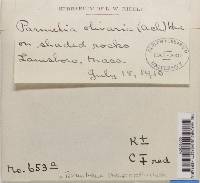 HERBARIUM OF L. W. RIDDLE
Parmelia olivaris (Ach) Hue
on shaded rocks
Lanesboro, Mass.
July 18, 1910
K±
C∓ red
No. 653a